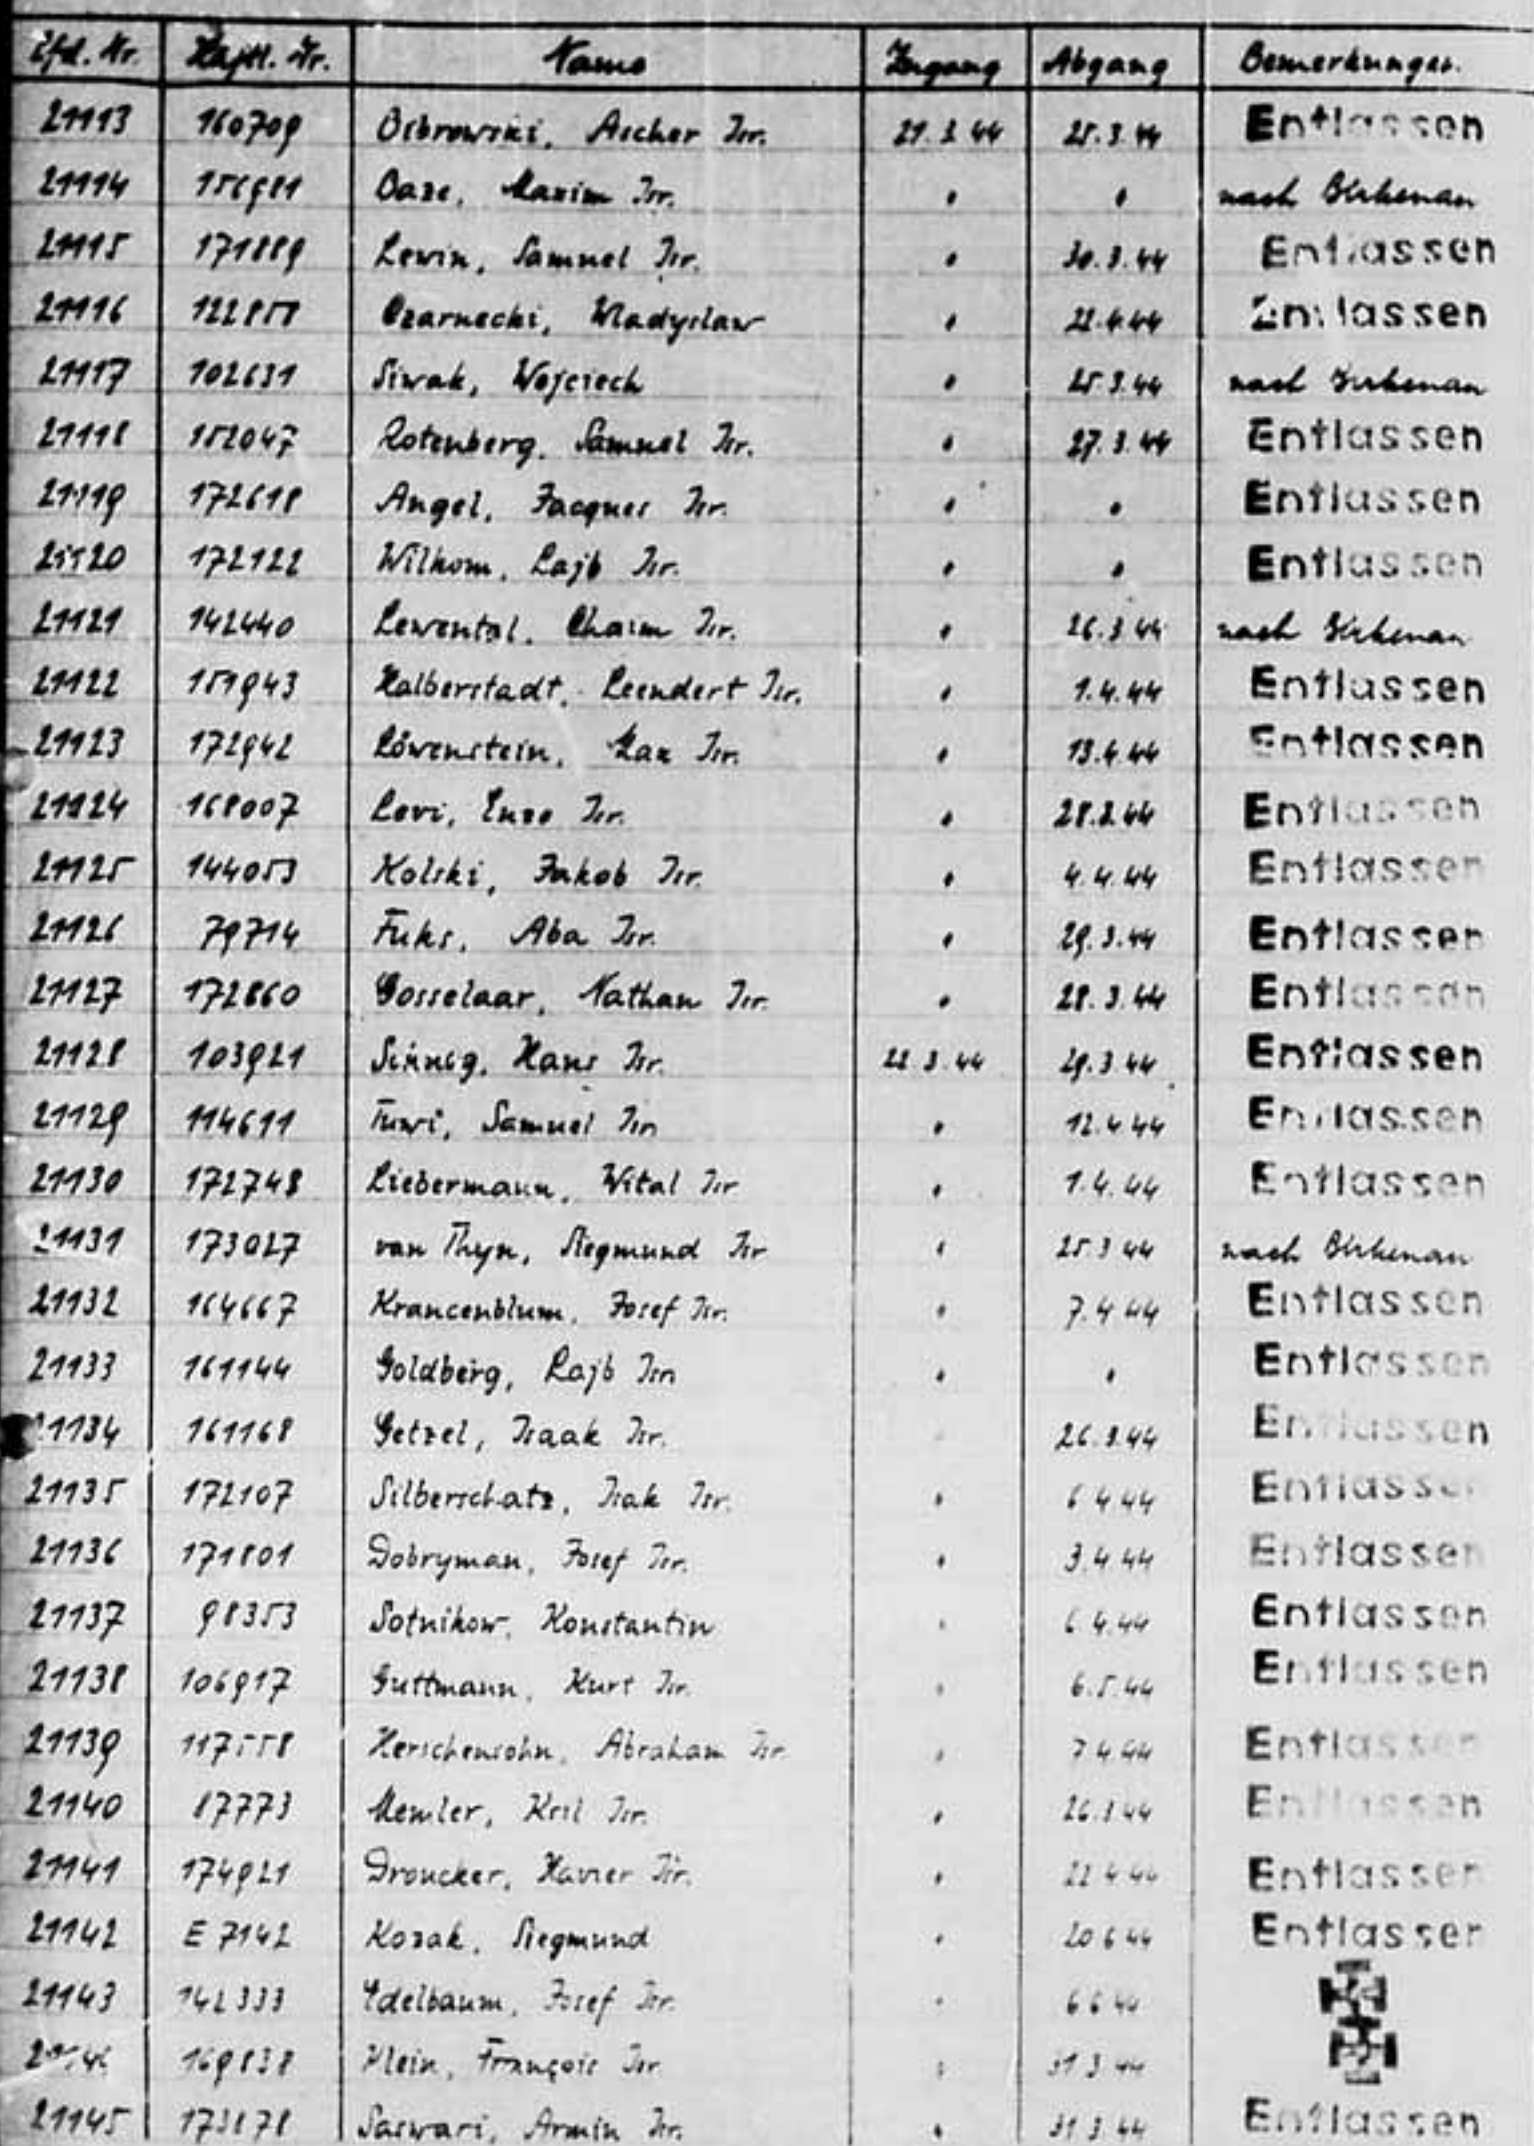 Lfd. Nr. Häftl. Nr. Name Zugang Abgang Bemerkungen
21113 160709 Ascher Isr. 21.3.44 25.3.44 Entlassen
21114 Maxim Isr. " " nach Birkenau
21115 171889 Lewin, Samuel Isr. " 30.3.44 Entlassen
21116 Czarnecki, Wladyslaw " Entlassen
21117 102631 Siwak, Wojciech " 25.3.44 nach Birkenau
21118 152047 Rotenberg, Samuel Isr. " 27.3.44 Entlassen
21119 172618 Angel, Jacques Isr. " " Entlassen
21120 172122 Lajb Isr. " " Entlassen
21121 142440 Lewental, Chaim Isr. " 26.3.44 nach Birkenau
21122 151943 Halberstadt, Leendert Isr. " 1.4.44 Entlassen
21123 172942 Löwenstein, Max Isr. " 13.4.44 Entlassen
21124 168007 Levi, Enzo Isr. " 28.3.44 Entlassen
21125 144053 Holski, Jakob Isr. " 4.4.44 Entlassen
21126 79714 Fuks, Aba Isr. " 29.3.44 Entlassen
21127 172860 Gosselaar, Nathan Isr. " 28.3.44 Entlassen
21128 103921 Hans Isr. 22.3.44 29.3.44 Entlassen
21129 114611 Samuel Isr. " 12.4.44 Entlassen
21130 172748 Liebermann, Wital Isr. " 1.4.44 Entlassen
21131 173027 van Thyn, Siegmund Isr. " 25.3.44 nach Birkenau
21132 164667 Krancenblum, Josef Isr. " 7.4.44 Entlassen
21133 161144 Goldberg, Lajb Isr. " " Entlassen
21134 161168 Getzel, Isaak Isr. 26.3.44 Entlassen
21135 172107 Silberschatz, Isak Isr. " 6.4.44 Entlassen
21136 171801 Dobryman, Josef Isr. " 3.4.44 Entlassen
21137 98353 Sotnikow, Konstantin " 6.4.44 Entlassen
21138 106917 Guttmann, Kurt Isr. " 6.5.44 Entlassen
21139 117558 Herschensohn, Abraham Isr. " 7.4.44 Entlassen
21140 87773 Isr. " 26.3.44 Entlassen
21141 174921 Droucker, Isr. " 22.4.44 Entlassen
21142 E 7142 Kozak, Siegmund " 20.6.44 Entlassen
21143 142333 Edelbaum, Josef Isr. " 6.6.44
169838 Klein, François Isr. " 31.3.44
21145 173878 Armin Isr. " 31.3.44 Entlassen